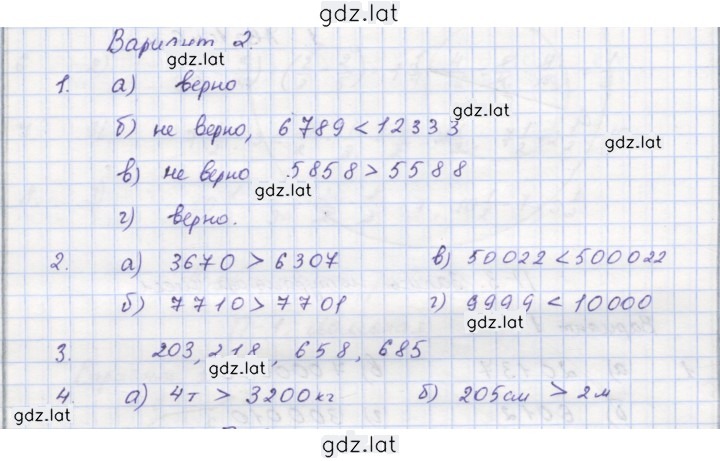 gdz.lat
Вариант 2.
gdz.lat
1. а) верно
gdz.lat
б) не верно, 6789 < 12333
gdz.lat
в) не верно 5858 > 5588
gdz.lat
г) верно.
2. а) 3670 > 6307 в) 50022 < 500022
б) 7710 > 7701 г) 9999 < 10000
gdz.lat
3. 203, 218, 658, 685
gdz.lat
4. а) 4т > 3200кг б) 205см > 2м
gdz.lat
gdz.lat
gdz.lat